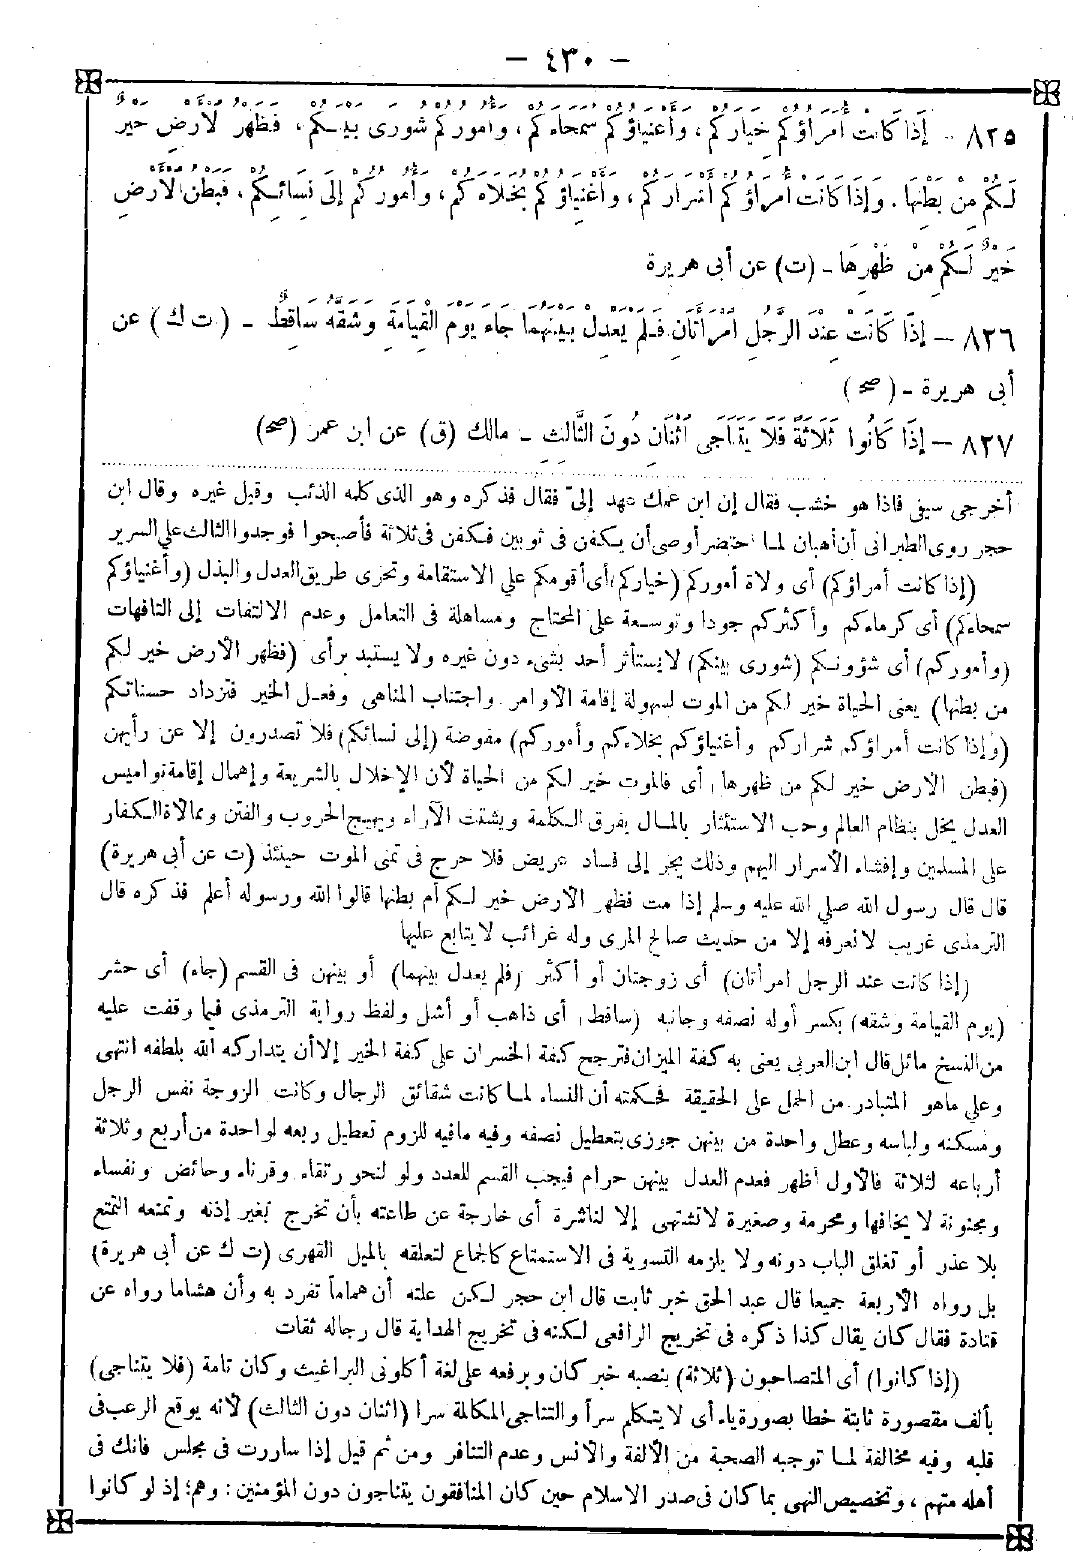 – ٤٣٠ –
٨٢٥ – إِذَا كَانَتْ أُمَرَاؤُكُمْ خِيَارَكُمْ ، وَأَغْنِيَاؤُكُمْ سُمَحَاءَكُمْ ، وَأُمُورُكُمْ شُورَى بَيْنَكُمْ ، فَظَهْرُ الْأَرْضِ خَيْرٌ
لَكُمْ مِنْ بَطْنِهَا . وَإِذَا كَانَتْ أُمَرَاؤُكُمْ أَشْرَارَكُمْ ، وَأَغْنِيَاؤُكُمْ بُخَلَاءَكُمْ ، وَأُمُورُكُمْ إِلَى نِسَائِكُمْ ، فَبَطْنُ الْأَرْضِ
خَيْرٌ لَكُمْ مِنْ ظَهْرِهَا – (ت) عن أبى هريرة
٨٢٦ – إِذَا كَانَتْ عِنْدَ الرَّجُلِ امْرَأَتَانِ فَلَمْ يَعْدِلْ بَيْنَهُمَا جَاءَ يَوْمَ الْقِيَامَةِ وَشِقُّهُ سَاقِطٌ – (ت ك) عن
أبى هريرة – (صح)
٨٢٧ – إِذَا كَانُوا ثَلَاثَةً فَلَا يَتَنَاجَى اثْنَانِ دُونَ الثَّالِثِ – مالك (ق) عن ابن عمر (صح)
أخرجى سيفى فاذا هو خشب فقال إن ابن عمك عهد إلىّ فقال فذكره وهو الذى كلمه الذئب وقيل غيره وقال ابن
حجر روى الطبرانى أن أهبان لما احتضر أوصى أن يكفن فى ثوبين فكفن فى ثلاثة فأصبحوا فوجدوا الثالث على السرير
(إذا كانت أمراؤكم) أى ولاة أموركم (خياركم) أى أقومكم على الاستقامة وتحرى طريق العدل والبذل (وأغنياؤكم
سمحاءكم) أى كرماءكم وأكثركم جودا وتوسعة على المحتاج ومساهلة فى التعامل وعدم الالتفات إلى التافهات
(وأموركم) أى شؤونكم (شورى بينكم) لا يستأثر أحد بشىء دون غيره ولا يستبد برأى (فظهر الأرض خير لكم
من بطنها) يعنى الحياة خير لكم من الموت لسهولة إقامة الأوامر واجتناب المناهى وفعل الخير فتزداد حسناتكم
(وإذا كانت أمراؤكم شراركم وأغنياؤكم بخلاءكم وأموركم) مفوضة (إلى نسائكم) فلا تصدرون إلا عن رأيهن
(فبطن الأرض خير لكم من ظهرها) أى فالموت خير لكم من الحياة لأن الإخلال بالشريعة وإهمال إقامة نواميس
العدل يخل بنظام العالم وحب الاستئثار بالمال يفرق الكلمة ويشتت الآراء ويهيج الحروب والفتن وممالاة الكفار
على المسلمين وإفشاء الأسرار اليهم وذلك يجر إلى فساد عريض فلا حرج فى تمنى الموت حينئذ (ت عن أبى هريرة)
قال قال رسول الله صلى الله عليه وسلم إذا مت فظهر الأرض خير لكم أم بطنها قالوا الله ورسوله أعلم فذكره قال
الترمذى غريب لا نعرفه إلا من حديث صالح المرى وله غرائب لا يتابع عليها
(إذا كانت عند الرجل امرأتان) أى زوجتان أو أكثر (فلم يعدل بينهما) أو بينهن فى القسم (جاء) أى حشر
(يوم القيامة وشقه) بكسر أوله نصفه وجانبه (ساقط) أى ذاهب أو أشل ولفظ رواية الترمذى فيما وقفت عليه
من النسخ مائل قال ابن العربى يعنى به كفة الميزان فترجح كفة الخسران على كفة الخير إلا أن يتداركه الله بلطفه انتهى
وعلى ما هو المتبادر من الحمل على الحقيقة فحكمته أن النساء لما كانت شقائق الرجال وكانت الزوجة نفس الرجل
ومسكنه ولباسه وعطل واحدة من بينهن جوزى بتعطيل نصفه وفيه مافيه للزوم تعطيل ربعه لواحدة من أربع وثلاثة
أرباعه لثلاثة فالأول أظهر فعدم العدل بينهن حرام فيجب القسم للعدد ولو لنحو رتقاء وقرناء وحائض ونفساء
ومجنونة لا يخافها ومحرمة وصغيرة لا تشتهى إلا لناشرة أى خارجة عن طاعته بأن تخرج بغير إذنه وتمنعه التمتع
بلا عذر أو تغلق الباب دونه ولا يلزمه التسوية فى الاستمتاع كالجماع لتعلقه بالميل القهرى (ت ك عن أبى هريرة)
بل رواه الأربعة جميعا قال عبد الحق خبر ثابت قال ابن حجر لكن علته أن هماماً تفرد به وأن هشاما رواه عن
قتادة فقال كان يقال كذا ذكره فى تخريج الرافعى لكنه فى تخريج الهداية قال رجاله ثقات
(إذا كانوا) أى المتصاحبون (ثلاثة) بنصبه خبر كان وبرفعه على لغة أكلونى البراغيث وكان تامة (فلا يتناجى)
بألف مقصورة ثابتة خطا بصورة ياء أى لا يتكلم سراً والتناجى المكالمة سرا (اثنان دون الثالث) لأنه يوقع الرعب فى
قلبه وفيه مخالفة لما توجبه الصحبة من الألفة والأنس وعدم التنافر ومن ثم قيل إذا ساررت فى مجلس فانك فى
أهله متهم ، وتخصيص النهى بما كان فى صدر الاسلام حين كان المنافقون يتناجون دون المؤمنين : وهم؛ إذ لو كانوا